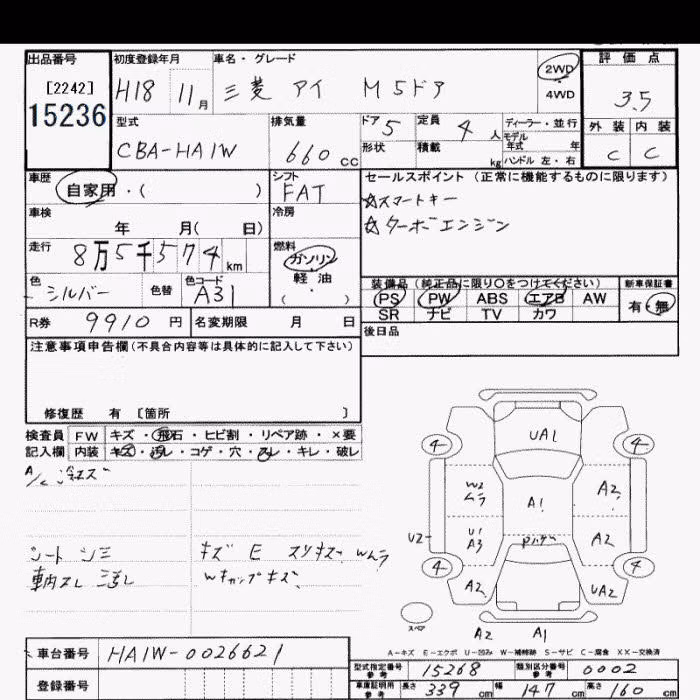 出品番号 初度登録年月 車名・グレード 評価点
[2242] H18 11月 三菱 アイ M 5ドア 2WD 4WD 3.5
15236
型式 排気量 ドア 5 定員 4人 ディーラー・並行 外装 内装
CBA-HA1W 660cc 形状 積載 kg モデル年式 年 ハンドル 左・右 C C
車歴 シフト セールスポイント(正常に機能するものに限ります)
自家用・( ) FAT ☆スマートキー
車検 冷房 ☆ターボエンジン
年 月( 日)
走行 8万5千574km 燃料 ガソリン
軽・油
色 シルバー 色替 色コード A31 ( ・ )
装備品(純正品に限り○をつけてください) 新車保証書
PS PW ABS エアB AW 有・無
SR ナビ TV カワ
R券 9910円 名変期限 月 日 後日品
注意事項申告欄(不具合内容等は具体的に記入して下さい)
修復歴 有 [箇所 ]
検査員 FW キズ・飛石・ヒビ割・リペア跡・×要
記入欄 内装 キズ・汚レ・コゲ・穴・スレ・キレ・破レ
A/C
シート シミ キズ E スリキズ Wムラ
車内スレ Wキャップキズ
UA1
4 4
W2 ムラ A1 A2
U2 U1 A3 A2
4 4
A2 UA2
スペア
A2 A1
A-キズ E-エクボ U-凹み W-補修跡 S-サビ C-腐食 XX-交換済
車台番号 HA1W-0026621
登録番号
型式指定番号 参考 15268 類別区分番号 参考 0002
車庫証明用 参考 長さ 339cm 幅 147cm 高さ 160cm